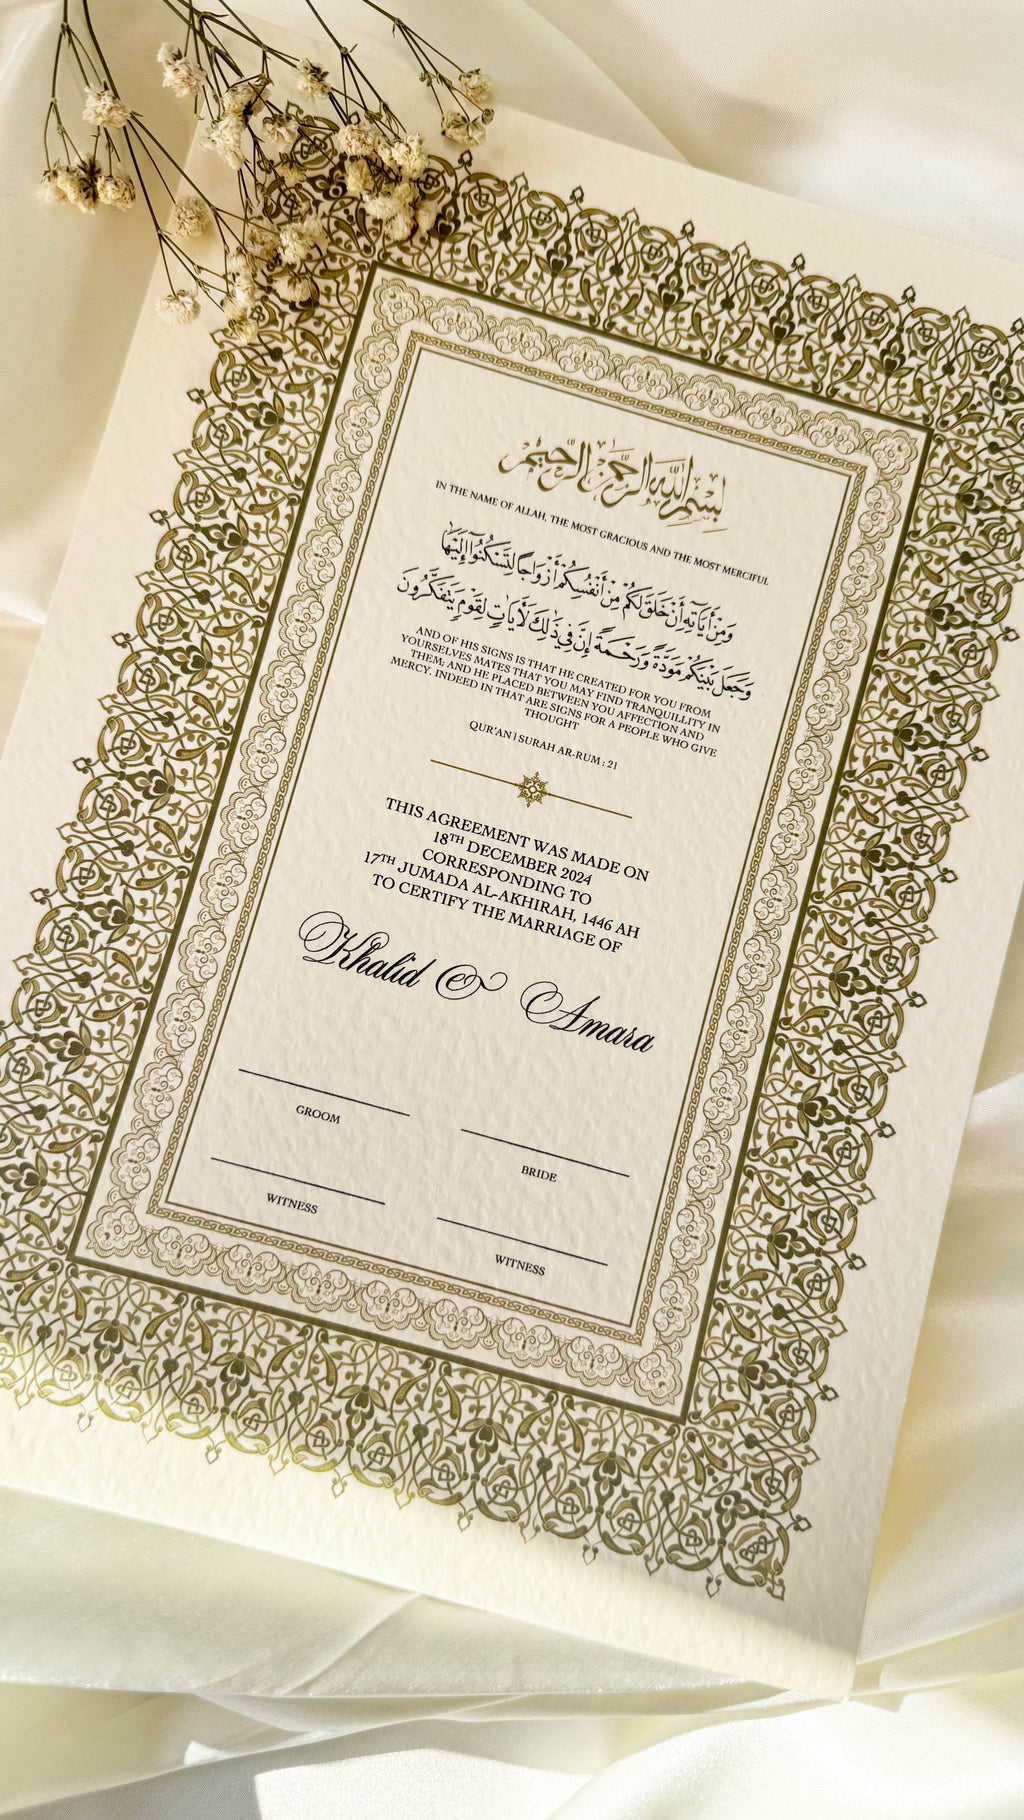 بِسْمِ اللَّهِ الرَّحْمَٰنِ الرَّحِيمِ
IN THE NAME OF ALLAH, THE MOST GRACIOUS AND THE MOST MERCIFUL
وَمِنْ آيَاتِهِ أَنْ خَلَقَ لَكُمْ مِنْ أَنْفُسِكُمْ أَزْوَاجًا لِتَسْكُنُوا إِلَيْهَا
وَجَعَلَ بَيْنَكُمْ مَوَدَّةً وَرَحْمَةً إِنَّ فِي ذَلِكَ لَآيَاتٍ لِقَوْمٍ يَتَفَكَّرُونَ
AND OF HIS SIGNS IS THAT HE CREATED FOR YOU FROM
YOURSELVES MATES THAT YOU MAY FIND TRANQUILLITY IN
THEM; AND HE PLACED BETWEEN YOU AFFECTION AND
MERCY. INDEED IN THAT ARE SIGNS FOR A PEOPLE WHO GIVE
THOUGHT
QUR'AN | SURAH AR-RUM : 21
THIS AGREEMENT WAS MADE ON
18TH DECEMBER 2024
CORRESPONDING TO
17TH JUMADA AL-AKHIRAH, 1446 AH
TO CERTIFY THE MARRIAGE OF
Khalid & Amara
GROOM
BRIDE
WITNESS
WITNESS